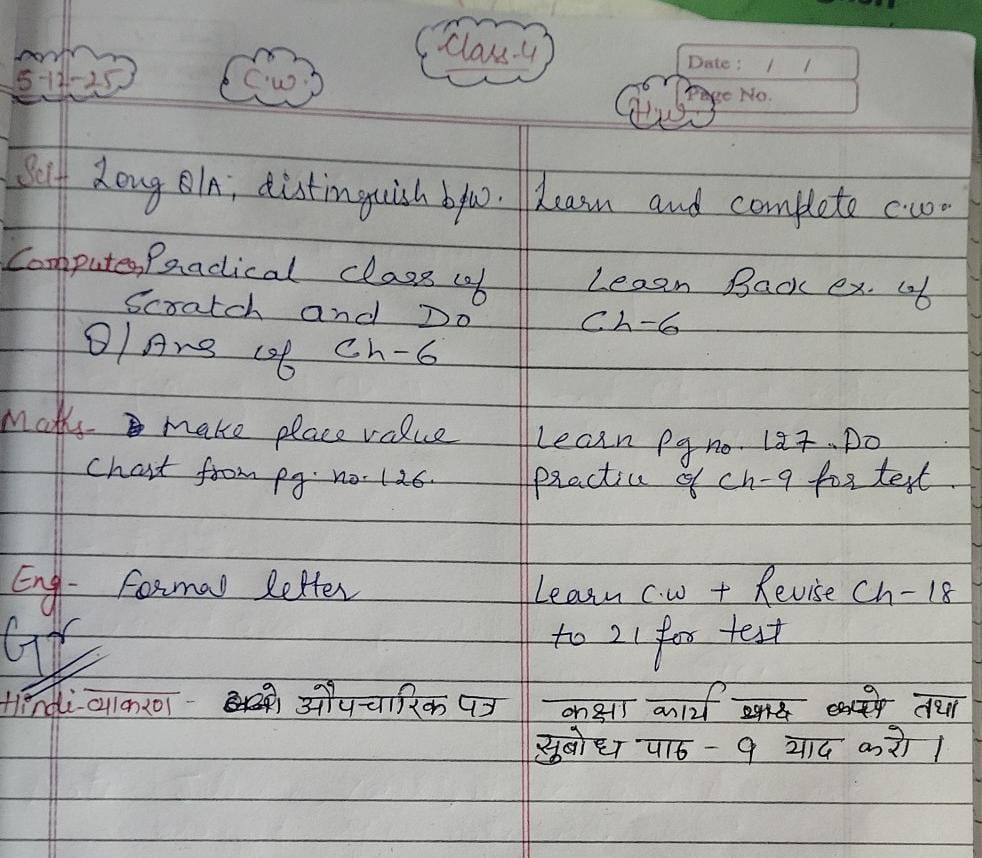 Class-4
5-12-25
C.W.
Date : / /
Page No.
H.W
Sci- Long Q/A, distinguish b/w. Learn and complete c.w.
Computer, Practical class of Learn Back ex. of
Scratch and Do Ch-6
Q/Ans of Ch-6
Maths- Make place value Learn pg no. 127. Do
Chart from pg. no. 126. practice of Ch-9 for test.
Eng- Formal letter Learn C.W + Revise Ch-18
Gr to 21 for test
Hindi-व्याकरण - औपचारिक पत्र कक्षा कार्य तथा
सुबोध पाठ - 9 याद करो ।